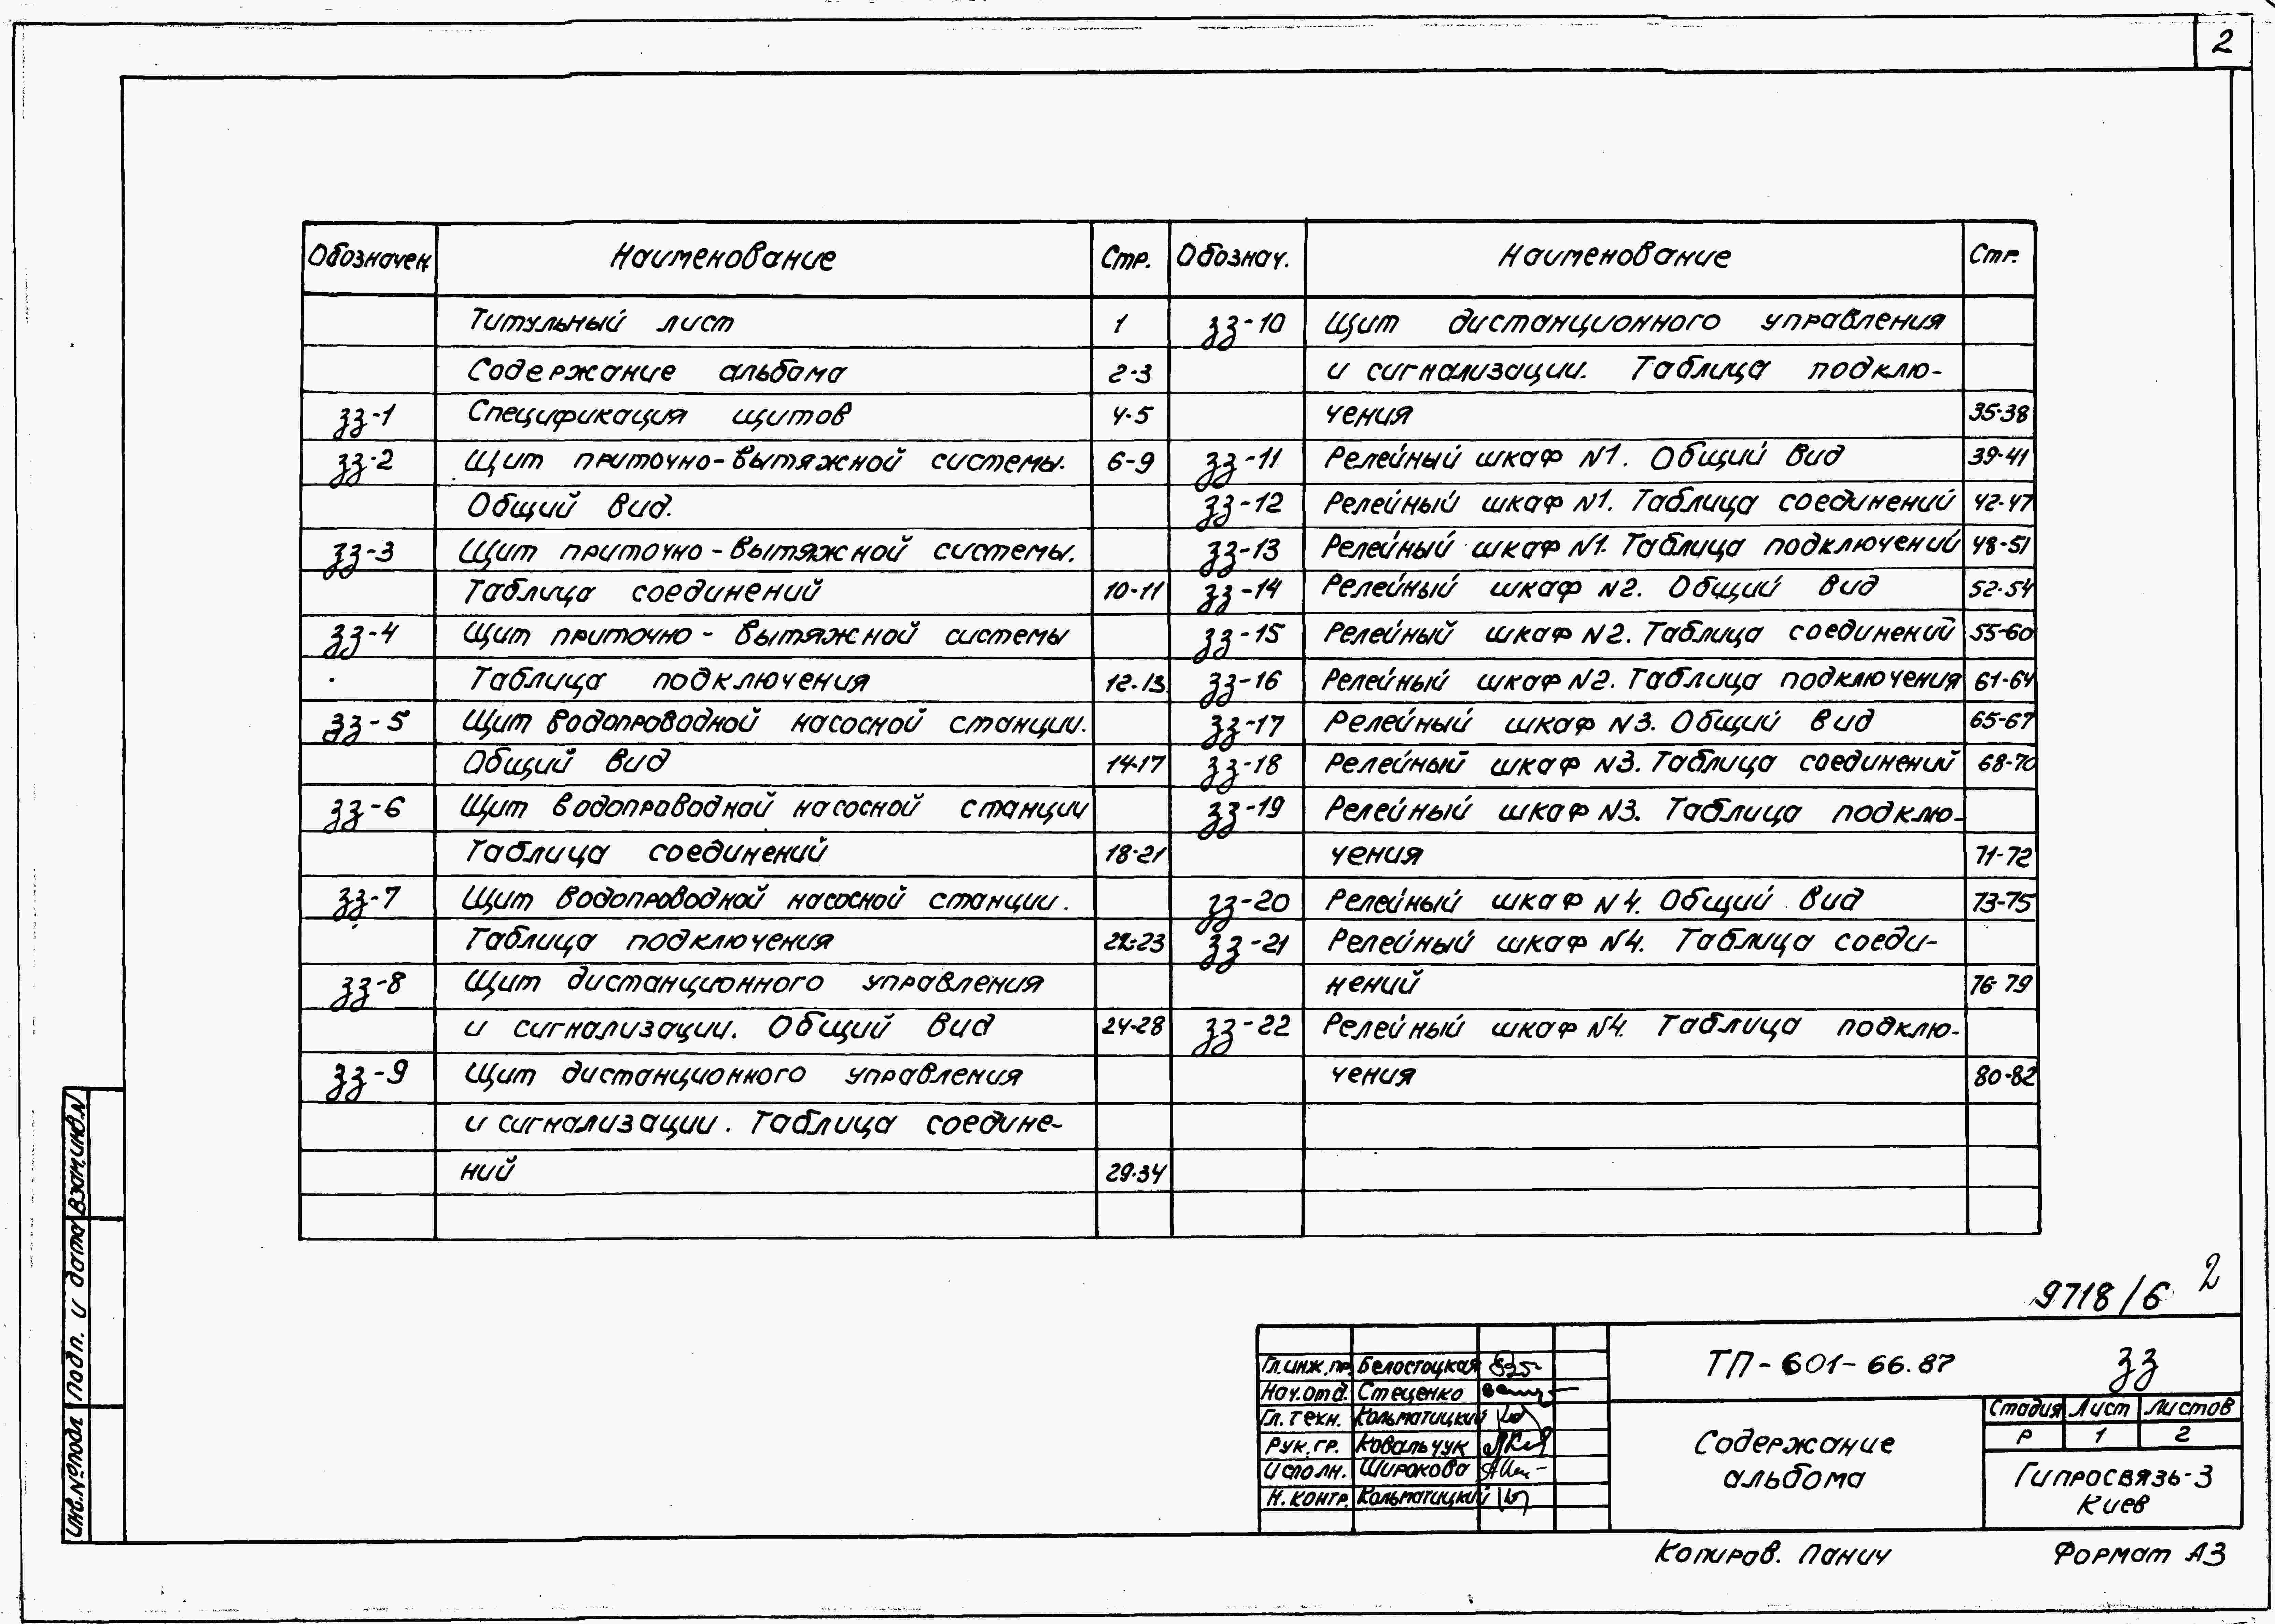 2
Обозначен. Наименование Стр. Обознач. Наименование Стр.
Титульный лист 1 зз-10 Щит дистанционного управления
Содержание альбома 2-3 и сигнализации. Таблица подклю-
зз-1 Спецификация щитов 4-5 чения 35-38
зз-2 Щит приточно-вытяжной системы. 6-9 зз-11 Релейный шкаф N1. Общий вид 39-41
Общий вид. зз-12 Релейный шкаф N1. Таблица соединений 42-47
зз-3 Щит приточно-вытяжной системы. зз-13 Релейный шкаф N1. Таблица подключений 48-51
Таблица соединений 10-11 зз-14 Релейный шкаф N2. Общий вид 52-54
зз-4 Щит приточно-вытяжной системы зз-15 Релейный шкаф N2. Таблица соединений 55-60
Таблица подключения 12-13 зз-16 Релейный шкаф N2. Таблица подключения 61-64
зз-5 Щит водопроводной насосной станции. зз-17 Релейный шкаф N3. Общий вид 65-67
Общий вид 14-17 зз-18 Релейный шкаф N3. Таблица соединений 68-70
зз-6 Щит водопроводной насосной станции зз-19 Релейный шкаф N3. Таблица подклю-
Таблица соединений 18-21 чения 71-72
зз-7 Щит водопроводной насосной станции. зз-20 Релейный шкаф N4. Общий вид 73-75
Таблица подключения 22-23 зз-21 Релейный шкаф N4. Таблица соеди-
зз-8 Щит дистанционного управления нений 76-79
и сигнализации. Общий вид 24-28 зз-22 Релейный шкаф N4. Таблица подклю-
зз-9 Щит дистанционного управления чения 80-82
и сигнализации. Таблица соедине-
ний 29-34
9718/6 2
Гл.инж.пр. Белостоцкая
Нач.отд. Стеценко
Гл.техн. Кольматицкий
Рук.гр. Ковальчук
Исполн. Широкова
Н.контр. Кольматицкий
ТП-601-66.87 зз
Содержание
альбома
Стадия Лист Листов
Р 1 2
Гипросвязь-3
Киев
Копиров. Панич Формат А3
Инв.№подл Подп. и дата Взам.инв.N